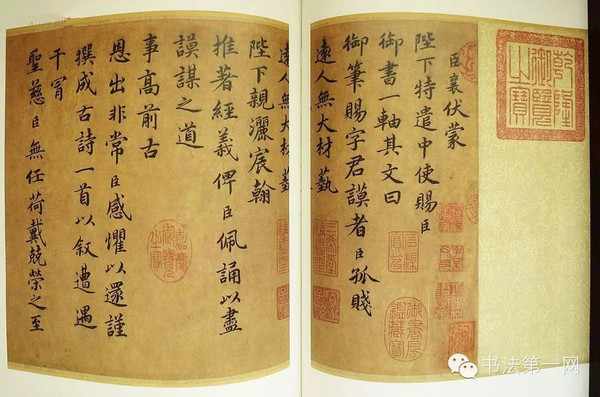 乾隆御覽之寶
臣襄伏蒙
陛下特遣中使賜臣
御書一軸其文曰
御筆賜字君謨者臣孤賤
遠人無大材藝
遠人無大材藝
陛下親灑宸翰
推著經義俾臣佩誦以盡
謨謀之道
事高前古
恩出非常臣感懼以還謹
撰成古詩一首以叙遭遇
干冐
聖慈臣無任荷戴兢榮之至
御書房鑑藏寶
嘉慶御覽之寶
书法第一网